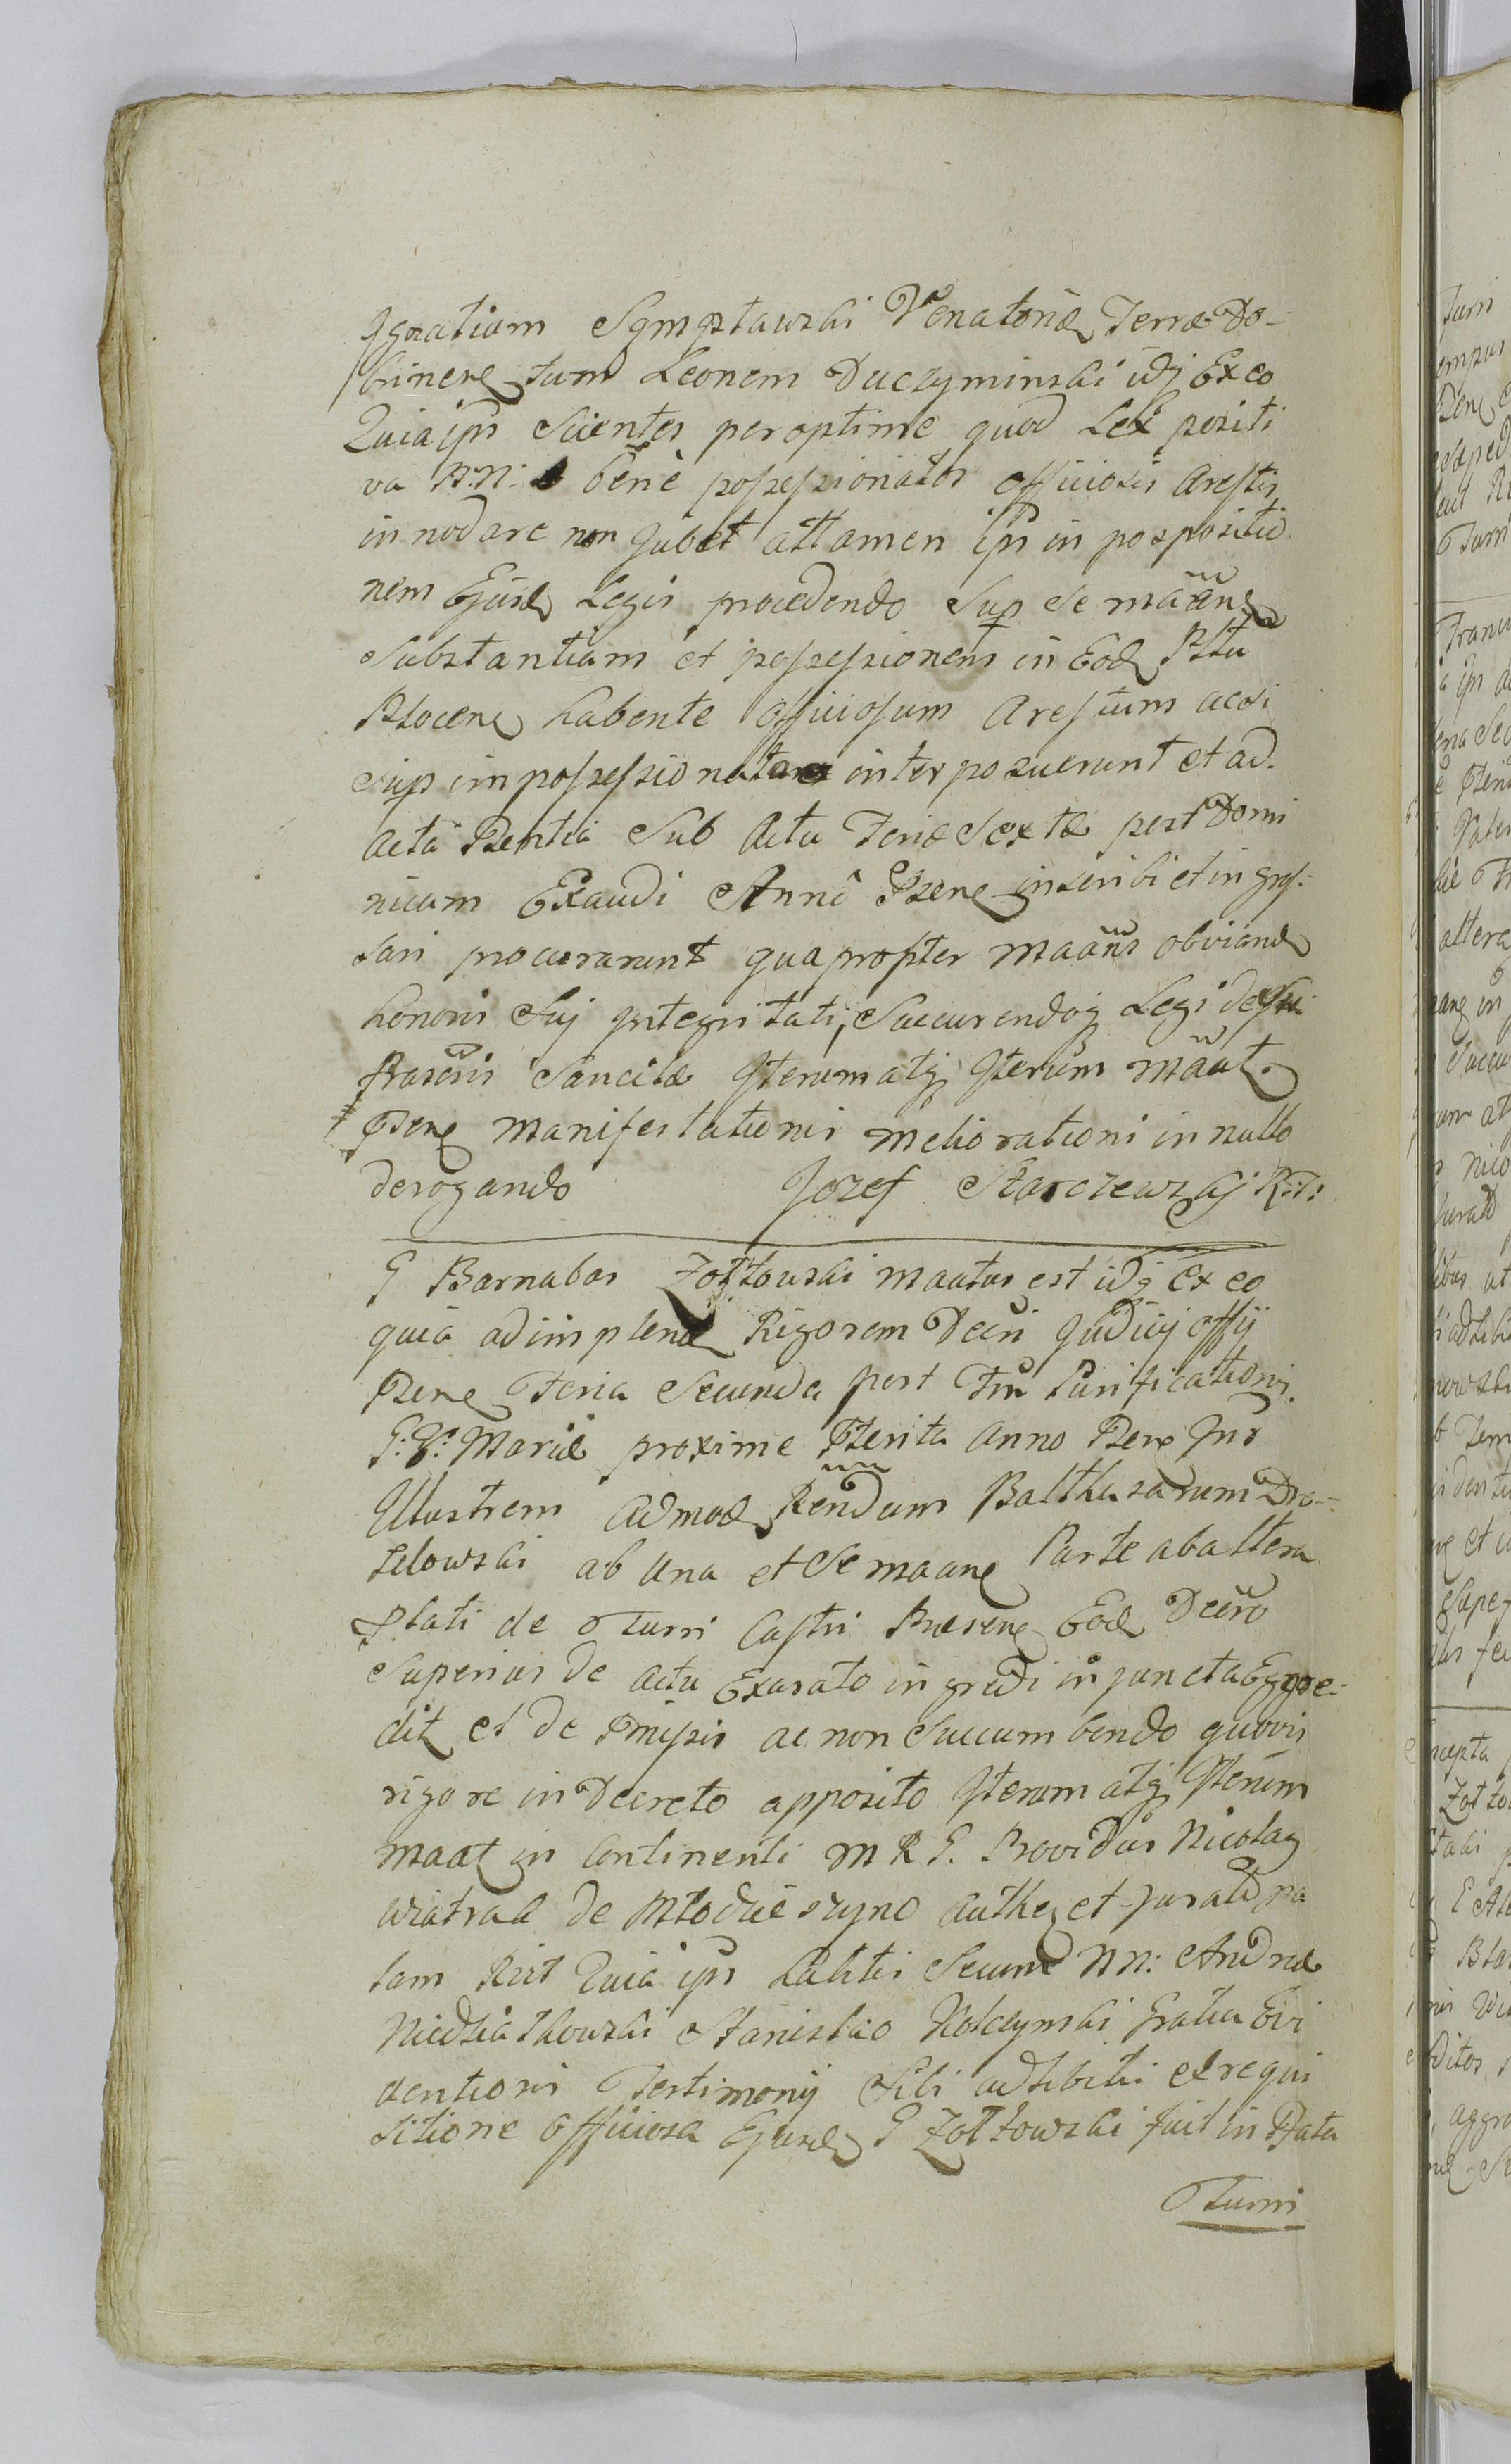 Ignatium Sgmgstawski Venatoriæ Terræ Do-
brinens tum Leonem Duczyminski idq Ex eo
Quia ipsi Scientes per optime quod Lex positi
va N:N: bene possessionatos officiosis Arestis
innodare non jubet attamen ipsi in pospositio
nem Ejusd Legis procedendo Sup Se maane
Substantiam et possessionem in Eod Pttu
Plocens habente officiosum Arestum acsi
Sup impossessionatum interposuerunt et ad
acta Psentia Sub Actu Feriæ Sextæ post Domi
nicam Exaudi Anno Psene inscribi et in gros-
sari procurarunt quapropter maans obviand
honoris Suj integritati, Succurendoq Legi de
Prasesis Sancitæ Iterum atq Iterum maat
Psene manifestationis meliorationi in nullo
derogando Jozef Starczewskj R:T:
G Barnabas Zołtowski maatus est idq Ex eo
quia adimplend Rigorem Decri Judicij offij
Psene Feria Secunda post Fm Purificationis
B: V: Mariæ proxime Pterita Anno Psene Inr
Illustrem Admod Rendum Balthasarum Dro-
zdowski ab Una et Se maane Parte ab altera
Plati de Turri Castri Prasens Eod Decro
Superius de actu Exarato ingredi injuncta Egre-
dit et de Pmissis ac non Succumbendo quovis
rigore in Decreto apposito Iterum atq Iterum
maat in Continenti M R G. Providus Nicolaq
Wiatrak de Młodzieszyno autheq et juratq pa
lam Rict Quia ipsi habitis Secum NN: Andrea
Niedziałkowski Stanislao Kolczynski Gratia Evi
dentioris Testimonij Sibi adhibitis et requi
sitione officiosa Ejusd G Zołtowski fuit in Pfata
Turri